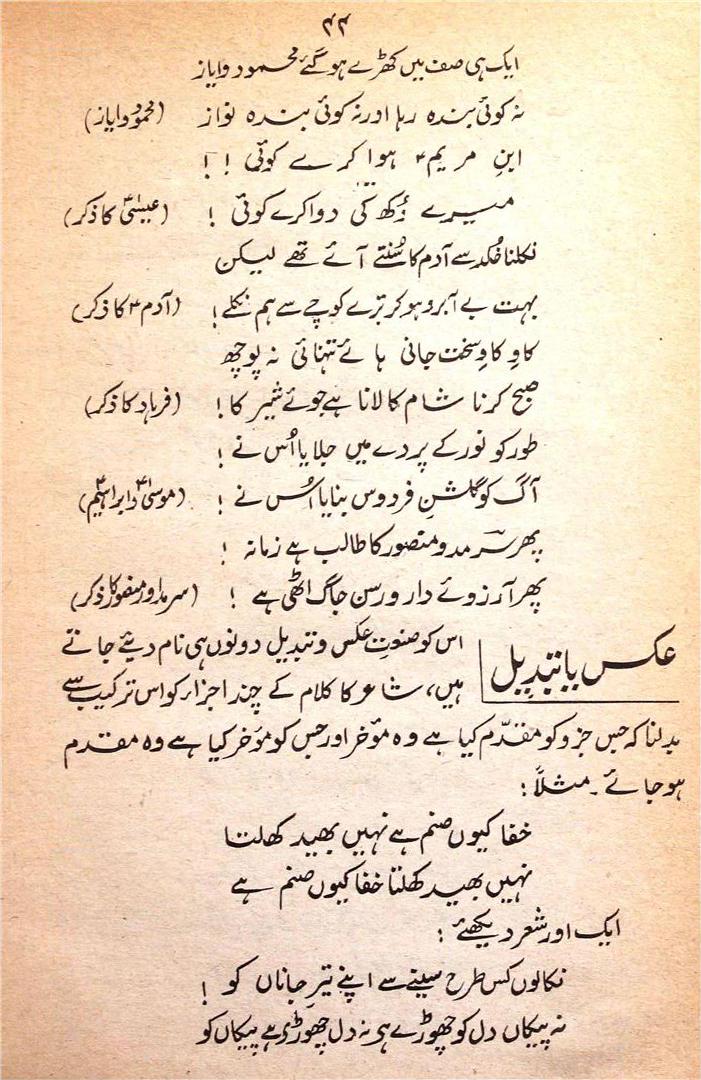 ۴۴
ایک ہی صف میں کھڑے ہو گئے محمود و ایاز
نہ کوئی بندہ رہا اور نہ کوئی بندہ نواز (محمود و ایاز)
ابنِ مریمؑ ہوا کرے کوئی !!
میرے دُکھ کی دوا کرے کوئی ! (عیسیٰؑ کا ذکر)
نکلنا خُلد سے آدم کا سُنتے آئے تھے لیکن
بہت بے آبرو ہو کر ترے کوچے سے ہم نکلے! (آدمؑ کا ذکر)
کاوِ کاوِ سخت جانی ہائے تنہائی نہ پوچھ
صبح کرنا شام کا لانا ہے جوئے شیر کا! (فرہاد کا ذکر)
طور کو نور کے پردے میں جلایا اُس نے !
آگ کو گلشنِ فردوس بنایا اُس نے ! (موسیٰؑ و ابراہیمؑ)
پھر سرمد و منصور کا طالب ہے زمانہ !
پھر آرزوئے دار و رسن جاگ اٹھی ہے ! (سرمد اور منصور کا ذکر)
عکس یا تبدیل
اس کو صنعتِ عکس و تبدیل دونوں ہی نام دیئے جاتے
ہیں، شاعر کا کلام کے چند اجزاء کو اس ترکیب سے
بدلنا کہ جس جزو کو مقدّم کیا ہے وہ مؤخر اور جس کو مؤخر کیا ہے وہ مقدم
ہو جائے۔ مثلاً :
خفا کیوں صنم ہے نہیں بھید کھلتا
نہیں بھید کھلتا خفا کیوں صنم ہے
ایک اور شعر دیکھئے :
نکالوں کس طرح سینے سے اپنے تیرِ جاناں کو !
نہ پیکاں دل کو چھوڑے ہے نہ دل چھوڑے ہے پیکاں کو